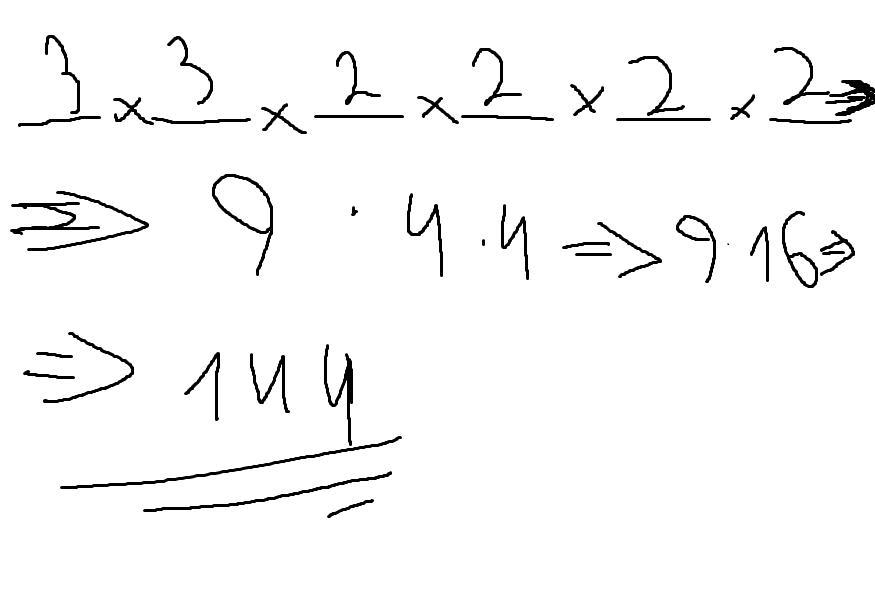 3 × 3 × 2 × 2 × 2 × 2 ⇒
⇒ 9 · 4 · 4 ⇒ 9 · 16 ⇒
⇒ 144